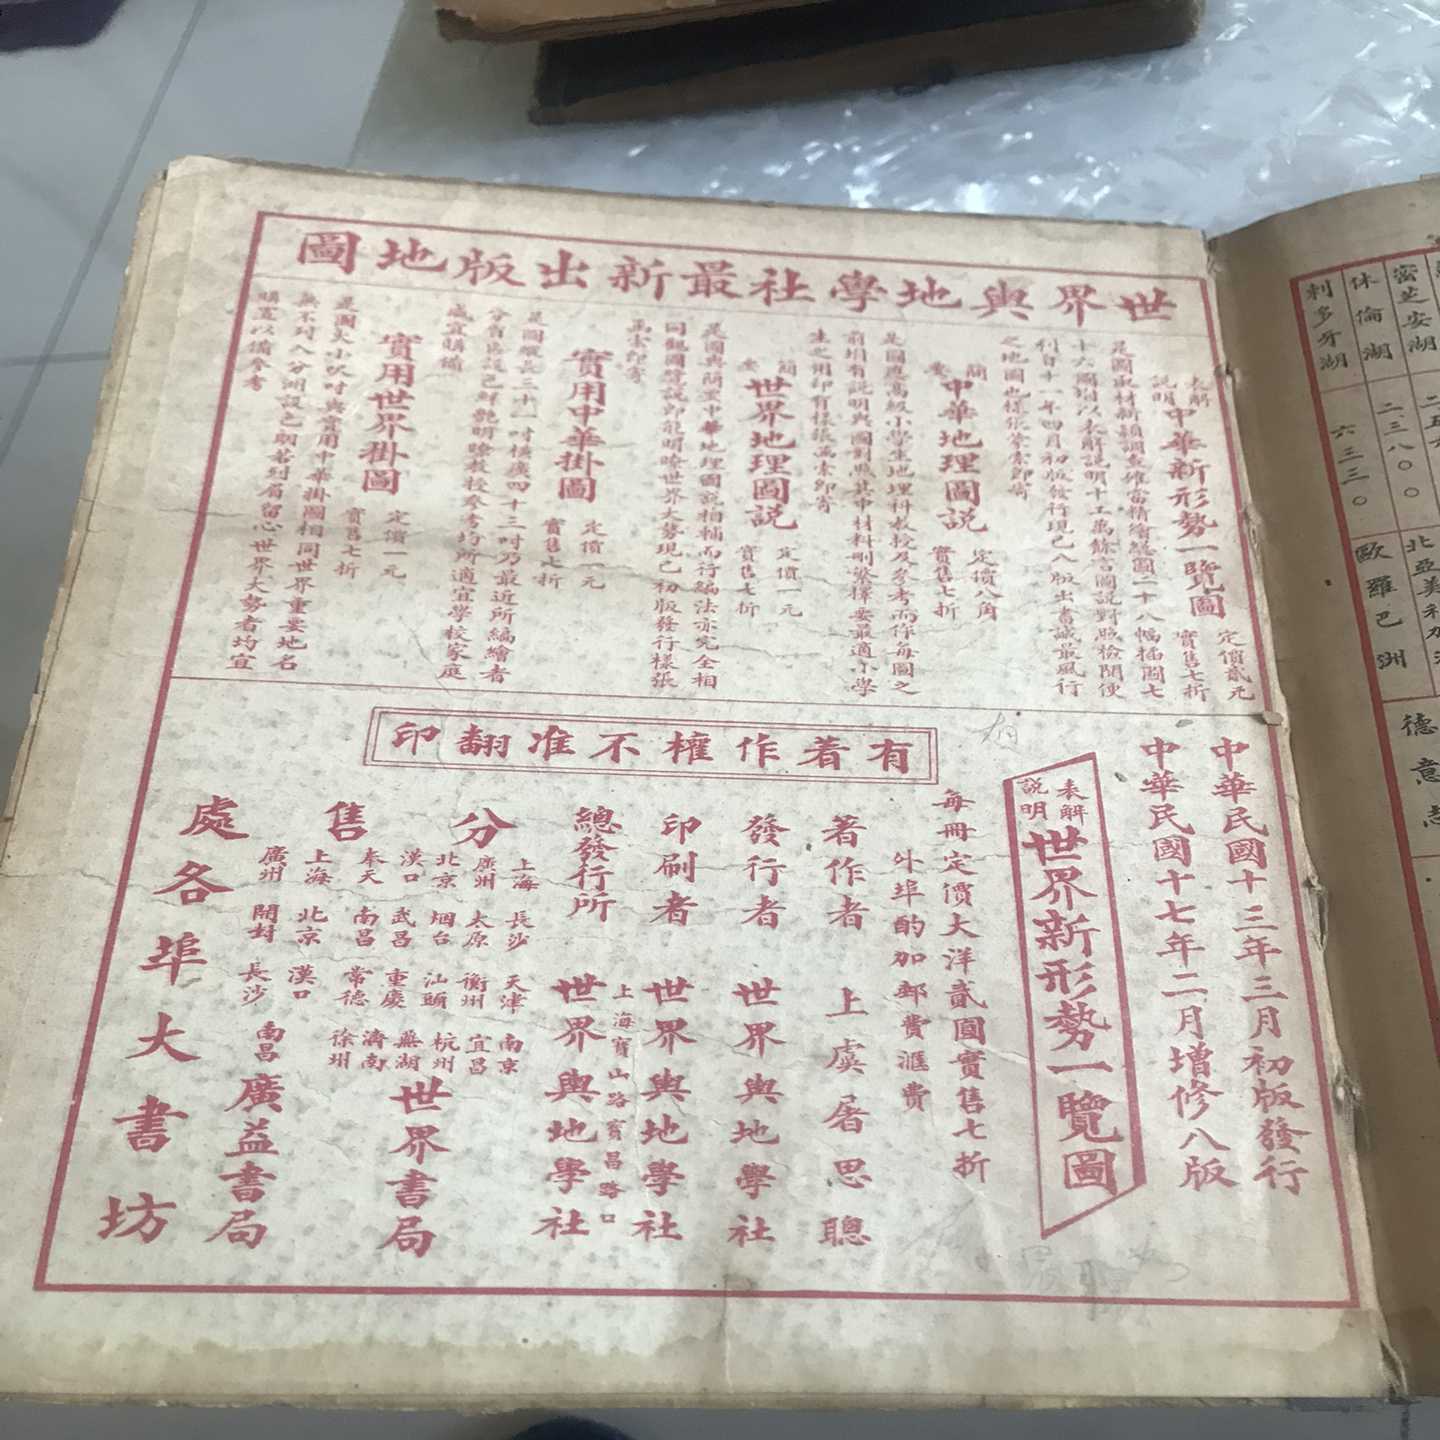 世界輿地學社最新出版地圖
表解
說明
中華新形勢一覽圖
定價貳元
實售七折
是圖取材新穎調查確當精繪總圖二十八幅插圖七
十六圖附以表解說明十工萬餘言圖說對照檢閱便
利自十一年四月初版發行現已八版出書誠最風行
之地圖也樣張索即寄
簡
要
中華地理圖說
定價八角
實售七折
是圖應高級小學生地理科教授及參考而作每圖之
前埧有說明與圖對照其中材料刪繁擇要最適小學
生之用印有樣張函索即寄
簡
要
世界地理圖說
定價一元
實售七折
是圖與簡要中華地理圖說相輔而行編法亦完全相
同觀圖覽說即能明瞭世界大勢現已初版發行樣張
函索即寄
實用中華掛圖
定價一元
實售七折
是圖縱長三十一吋橫廣四十三吋乃最近所編繪者
分省區設色鮮艷明瞭教授參考均所適宜學校家庭
咸宜購備
實用世界掛圖
定價一元
實售七折
是圖大小尺吋與實用中華掛圖相同世界重要地名
無不列入分洲設色朗若列眉留心世界大勢者均宜
購置以備參考
中華民國十三年三月初版發行
中華民國十七年二月增修八版
表解
說明
世界新形勢一覽圖
每冊定價大洋貳圓實售七折
外埠酌加郵費滙費
有著作權不准翻印
著作者 上虞屠思聰
發行者 世界輿地學社
印刷者 世界輿地學社
上海寶山路寶昌路口
總發行所 世界輿地學社
分售處
上海 長沙 天津 南京
廣州 太原 衡州 宜昌
北京 烟台 汕頭 杭州
漢口 武昌 重慶 蕪湖
奉天 南昌 常德 濟南 徐州
世界書局
上海 北京 漢口
廣州 開封 長沙 南昌
廣益書局
各埠大書坊
密芝安湖
休倫湖 二三八〇〇
利多牙湖 六三三〇
北亞美利加洲
歐羅巴洲
德意志